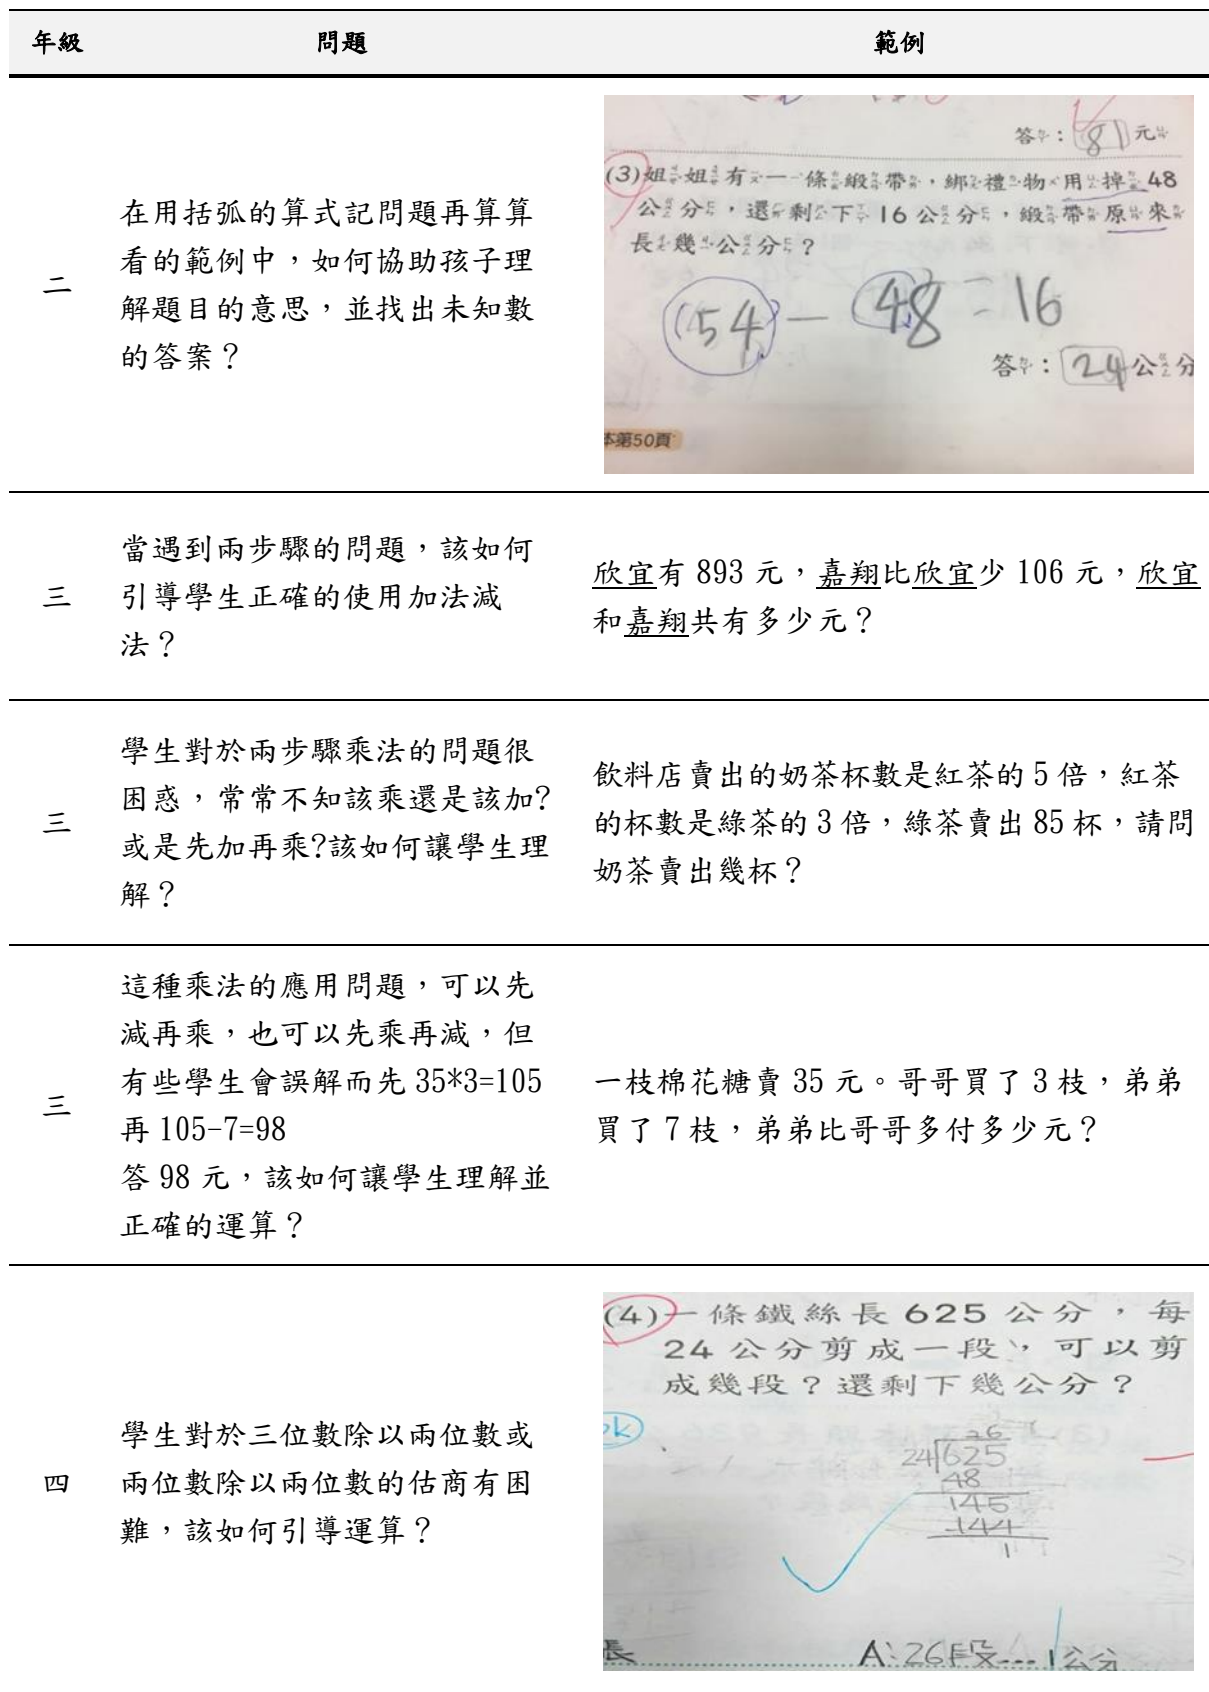 年級 問題 範例
二
在用括弧的算式記問題再算算
看的範例中，如何協助孩子理
解題目的意思，並找出未知數
的答案？
答：81元
(3)姐姐有一條緞帶，綁禮物用掉48
公分，還剩下16公分，緞帶原來
長幾公分？
(54)－48=16
答：24公分
本第50頁
三
當遇到兩步驟的問題，該如何
引導學生正確的使用加法減
法？
欣宜有 893 元，嘉翔比欣宜少 106 元，欣宜
和嘉翔共有多少元？
三
學生對於兩步驟乘法的問題很
困惑，常常不知該乘還是該加?
或是先加再乘?該如何讓學生理
解？
飲料店賣出的奶茶杯數是紅茶的 5 倍，紅茶
的杯數是綠茶的 3 倍，綠茶賣出 85 杯，請問
奶茶賣出幾杯？
三
這種乘法的應用問題，可以先
減再乘，也可以先乘再減，但
有些學生會誤解而先 35*3=105
再 105-7=98
答 98 元，該如何讓學生理解並
正確的運算？
一枝棉花糖賣 35 元。哥哥買了 3 枝，弟弟
買了 7 枝，弟弟比哥哥多付多少元？
四
學生對於三位數除以兩位數或
兩位數除以兩位數的估商有困
難，該如何引導運算？
(4)一條鐵絲長625公分，每
24公分剪成一段，可以剪
成幾段？還剩下幾公分？
ok
26
24 625
48
145
144
1
長
A:26段...1公分